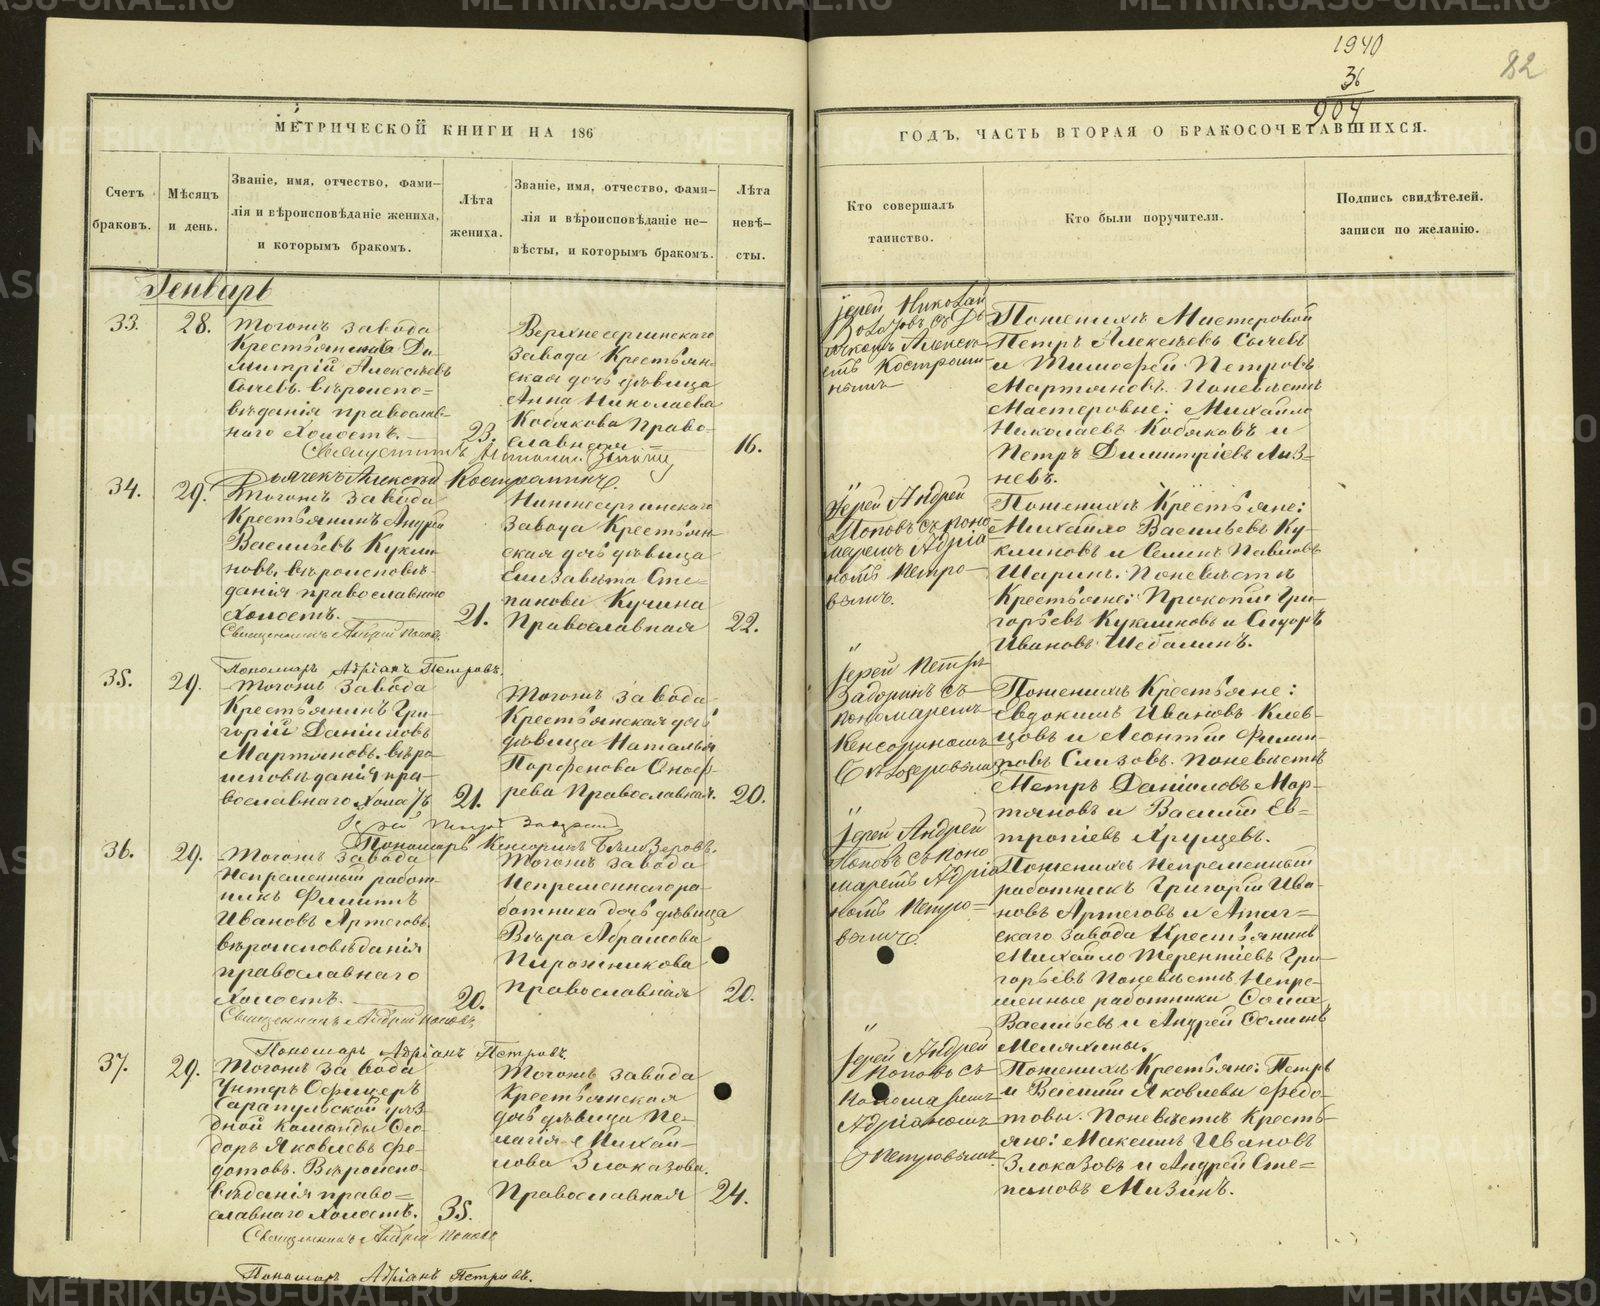 1940
36
904
82
МЕТРИЧЕСКОЙ КНИГИ НА 186
ГОДЪ, ЧАСТЬ ВТОРАЯ О БРАКОСОЧЕТАВШИХСЯ.
Счетъ
браковъ.
Мѣсяцъ
и день.
Званіе, имя, отчество, фами-
лія и вѣроисповѣданіе жениха,
и которымъ бракомъ.
Лѣта
жениха.
Званіе, имя, отчество, фами-
лія и вѣроисповѣданіе не-
вѣсты, и которымъ бракомъ.
Лѣта
невѣ-
сты.
Кто совершалъ
таинство.
Кто были поручители.
Подпись свидѣтелей.
записи по желанію.
Генварь
33.
28.
Тогожъ завода
Крестьянинъ Ди-
митрій Алексѣевъ
Сычевъ вѣроиспо-
вѣданія православ-
наго Холостъ.
23.
Верхнесергинскаго
завода Крестьян-
ская дочь дѣвица
Анна Николаева
Кобякова Право-
славная
16.
Іерей Николай
съ Дь-
ячкомъ Алексѣ-
емъ Костроми-
нымъ
Поженихѣ Мастеровой
Петръ Алексѣевъ Сычевъ
и Тимофей Петровъ
Мартьяновъ. Поневѣстѣ
Мастеровые: Михайло
Николаевъ Кобяковъ и
Петръ Димитріевъ Лиз-
невъ.
Священникъ
Дьячекъ Алексѣй Костроминъ.
34.
29.
Тогожъ завода
Крестьянинъ Андрей
Васильевъ Кукли-
новъ. вѣроисповѣ-
данія православнаго
Холостъ.
21.
Нижнесергинскаго
завода Крестьян-
ская дочь дѣвица
Елизавета Сте-
панова Кучина
Православная
22.
Іерей Андрей
Поповъ съ поно-
маремъ Адріа-
номъ Петро-
вымъ.
Поженихѣ Крестьяне:
Михайло Васильевъ Ку-
клиновъ и Семенъ Павловъ
Шаринъ. Поневѣстѣ
Крестьяне: Прокопій Гри-
горьевъ Куклиновъ и Сидоръ
Ивановъ Шебалинъ.
Священникъ Андрей Поповъ
Пономарь Адріанъ Петровъ.
35.
29.
Тогожъ завода
Крестьянинъ Гри-
горій Даніиловъ
Мартьяновъ. вѣро-
исповѣданія пра-
вославнаго Холостъ
21.
Тогожъ завода
Крестьянская дочь
дѣвица Наталья
Парфенова Оноф-
рева Православная.
20.
Іерей Петръ
Задоринъ съ
пономаремъ
Кенсориномъ
Поженихѣ Крестьяне:
Евдокимъ Ивановъ Клев-
цовъ и Леонтій Филип-
повъ Слизовъ. Поневѣстѣ
Петръ Даніиловъ Мар-
тьяновъ и Василій Ев-
тропіевъ Хрущевъ.
Іерей Петръ Задоринъ
Пономарь Кенсоринъ
36.
29.
Тогожъ завода
Непременный работ-
никъ Филиппъ
Ивановъ Артеговъ
вѣроисповѣданія
православнаго
Холостъ.
20.
Тогожъ завода
Непременнагора-
ботника дочь дѣвица
Вѣра Абрамова
Пирожникова
Православная
20.
Іерей Андрей
Поповъ съ поно
маремъ Адріа
номъ Петро-
вымъ.
Поженихѣ Непременный
работникъ Григорій Ива-
новъ Артеговъ и Атиг-
скаго завода Крестьянинъ
Михайло Терентіевъ Гри-
горьевъ Поневѣстѣ Непре-
менные работники
Васильевъ и Андрей
Меляхины.
Священникъ Андрей Поповъ
Пономарь Адріанъ Петровъ
37.
29.
Тогожъ завода
Унтеръ Офицеръ
Сарапульской уѣз-
дной команды Ѳео-
доръ Яковлевъ Фе-
дотовъ. Вѣроиспо-
вѣданія право-
славнаго Холостъ.
35.
Тогожъ завода
Крестьянская
дочь дѣвица Пе-
лагія Михай-
лова Злоказова.
Православная
24.
Іерей Андрей
Поповъ съ
пономаремъ
Адріаномъ
Петровымъ
Поженихѣ Крестьяне: Петръ
и Василій Яковлевы Федо-
товы. Поневѣстѣ Кресть-
яне: Максимъ Ивановъ
Злоказовъ и Андрей Сте-
пановъ Мизинъ.
Священникъ Андрей Поповъ
Пономарь Адріанъ Петровъ.
METRIKI.GASO-URAL.RU